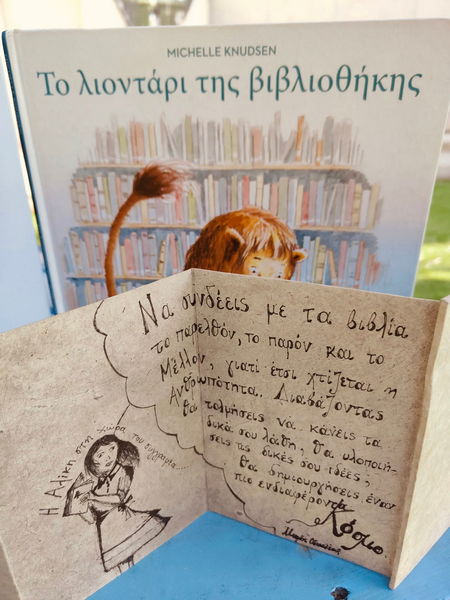 MICHELLE KNUDSEN
Το λιοντάρι της βιβλιοθήκης
Να συνδέεις με τα βιβλία
το παρελθόν, το παρόν και το
Μέλλον, γιατί έτσι χτίζεται η
Ανθρωπότητα. Διαβάζοντας
θα τολμήσεις να κάνεις τα
δικά σου λάθη, θα υλοποιή-
σεις τις δικές σου ιδέες,
θα δημιουργήσεις έναν
πιο ενδιαφέροντα
Κόσμο
Η Αλίκη στη χώρα του συγγραφέα...